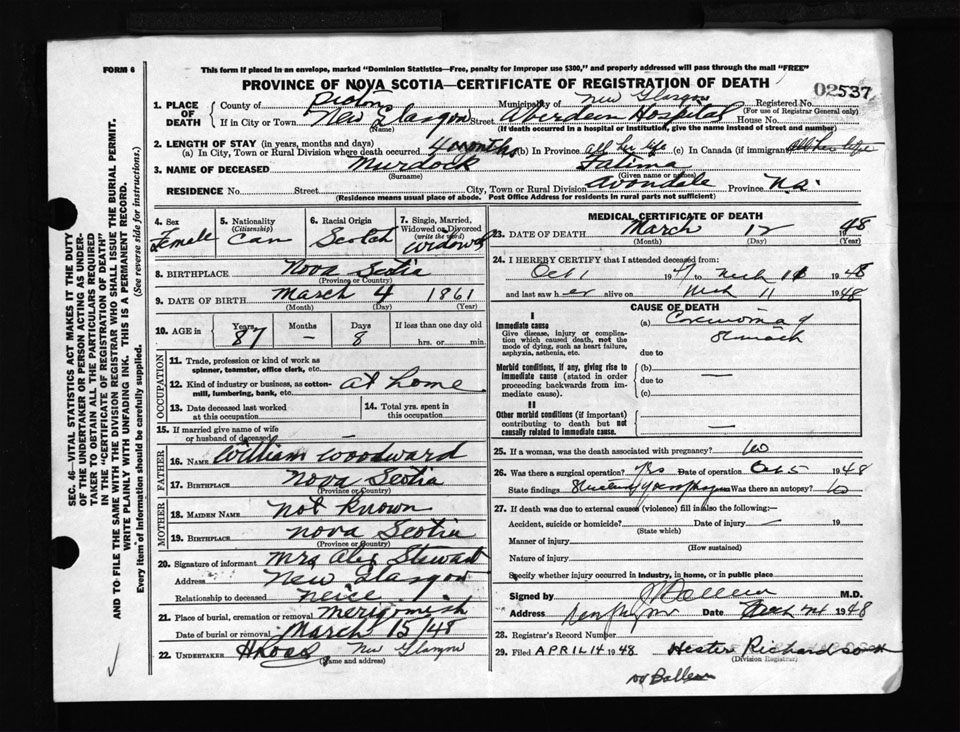 FORM 6
This form if placed in an envelope, marked "Dominion Statistics—Free, penalty for improper use $300," and properly addressed will pass through the mail "FREE"
PROVINCE OF NOVA SCOTIA—CERTIFICATE OF REGISTRATION OF DEATH
02537
1. PLACE OF DEATH
County of Pictou Municipality of New Glasgow Registered No.
(For use of Registrar General only)
If in City or Town New Glasgow Street Aberdeen Hospital House No.
(Name) (If death occurred in a hospital or institution, give the name instead of street and number)
2. LENGTH OF STAY (in years, months and days)
(a) In City, Town or Rural Division where death occurred 4 months (b) In Province all her life (c) In Canada (if immigrant) all her life
3. NAME OF DECEASED Murdock Fatima
(Surname) (Given name or names)
RESIDENCE No. Street City, Town or Rural Division Avondale Province N.S.
(Residence means usual place of abode. Post Office Address for residents in rural parts not sufficient)
SEC. 46—VITAL STATISTICS ACT MAKES IT THE DUTY
OF THE UNDERTAKER OR PERSON ACTING AS UNDER-
TAKER TO OBTAIN ALL THE PARTICULARS REQUIRED
IN THE "CERTIFICATE OF REGISTRATION OF DEATH"
AND TO FILE THE SAME WITH THE DIVISION REGISTRAR WHO SHALL ISSUE THE BURIAL PERMIT.
WRITE PLAINLY WITH UNFADING INK. THIS IS A PERMANENT RECORD.
Every item of information should be carefully supplied. (See reverse side for instructions.)
4. Sex
Female
5. Nationality
(Citizenship)
Can
6. Racial Origin
Scotch
7. Single, Married,
Widowed or Divorced
(write the word)
Widowed
8. BIRTHPLACE Nova Scotia
(Province or Country)
9. DATE OF BIRTH March 4 1861
(Month) (Day) (Year)
10. AGE in
Years Months Days If less than one day old
87 — 8 hrs. or min.
OCCUPATION
11. Trade, profession or kind of work as
spinner, teamster, office clerk, etc.
12. Kind of industry or business, as cotton-
mill, lumbering, bank, etc. at home
13. Date deceased last worked
at this occupation
14. Total yrs. spent in
this occupation
15. If married give name of wife
or husband of deceased —
FATHER
16. NAME William Woodward
17. BIRTHPLACE Nova Scotia
(Province or Country)
MOTHER
18. MAIDEN NAME Not Known
19. BIRTHPLACE Nova Scotia
(Province or Country)
20. Signature of informant Mrs Alex Stewart
Address New Glasgow
Relationship to deceased neice
21. Place of burial, cremation or removal Merigomish
Date of burial or removal March 15/48
22. UNDERTAKER New Glasgow
(Name and address)
MEDICAL CERTIFICATE OF DEATH
23. DATE OF DEATH March 12 1948
(Month) (Day) (Year)
24. I HEREBY CERTIFY that I attended deceased from:
Oct 1 1947 to Mch 1948
and last saw her alive on Mch 11 1948
CAUSE OF DEATH
I
Immediate cause
Give disease, injury or complica-
tion which caused death, not the
mode of dying, such as heart failure,
asphyxia, asthenia, etc.
(a) Carcinoma of
Stomach
due to
Morbid conditions, if any, giving rise to
immediate cause (stated in order
proceeding backwards from im-
mediate cause).
(b) —
due to
(c)
II
Other morbid conditions (if important)
contributing to death but not
causally related to immediate cause. —
25. If a woman, was the death associated with pregnancy? No
26. Was there a surgical operation? Yes Date of operation Oct 5 1948
State findings Was there an autopsy? No
27. If death was due to external causes (violence) fill in also the following:—
Accident, suicide or homicide? Date of injury — 19
(State which)
Manner of injury
(How sustained)
Nature of injury
Specify whether injury occurred in industry, in home, or in public place
Signed by M.D.
Address Date 1948
28. Registrar's Record Number
29. Filed APRIL 14 1948 Hester Richardson
(Division Registrar)